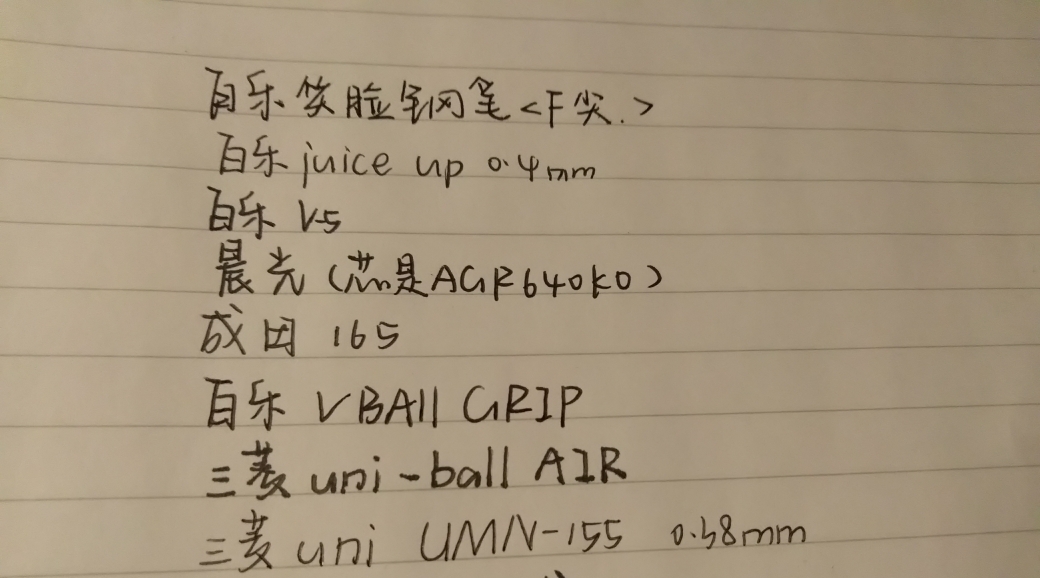 百乐笑脸钢笔<F尖.>
百乐juice up 0.4mm
百乐 V5
晨光(芯是AGR640K0)
成田 165
百乐 VBAll GRIP
三菱 uni-ball AIR
三菱 uni UMN-155 0.38mm